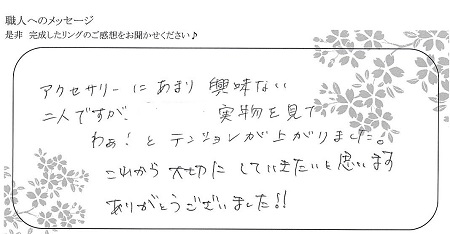 職人へのメッセージ
是非 完成したリングのご感想をお聞かせください♪
アクセサリーにあまり興味ない
二人ですが、 実物を見て
わぁ!とテンションが上がりました。
これから大切にしていきたいと思います
ありがとうございました!!